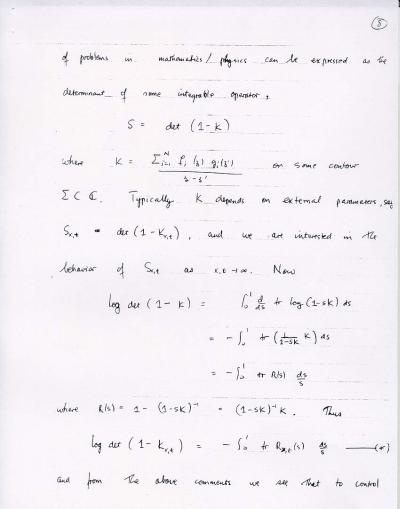 8
of problems in mathematics / physics can be expressed as the
determinant of some integrable operator,
S = det (1 - K)
where K = Σ_{i=1}^N f_i(z) g_i(z') / z - z' on some contour
Σ ⊂ ℂ. Typically K depends on external parameters, say
S_{x,t} = det (1 - K_{x,t}), and we are interested in the
behavior of S_{x,t} as x,t → ∞. Now
log det (1 - K) = ∫_0^1 d/ds tr log (1-sK) ds
= - ∫_0^1 tr (1/(1-sK) K) ds
= - ∫_0^1 tr R(s) ds/s
where R(s) = 1 - (1-sK)^{-1} = (1-sK)^{-1} K. Thus
log det (1 - K_{x,t}) = - ∫_0^1 tr R_{x,t}(s) ds/s —(*)
and from the above comments we see that to control